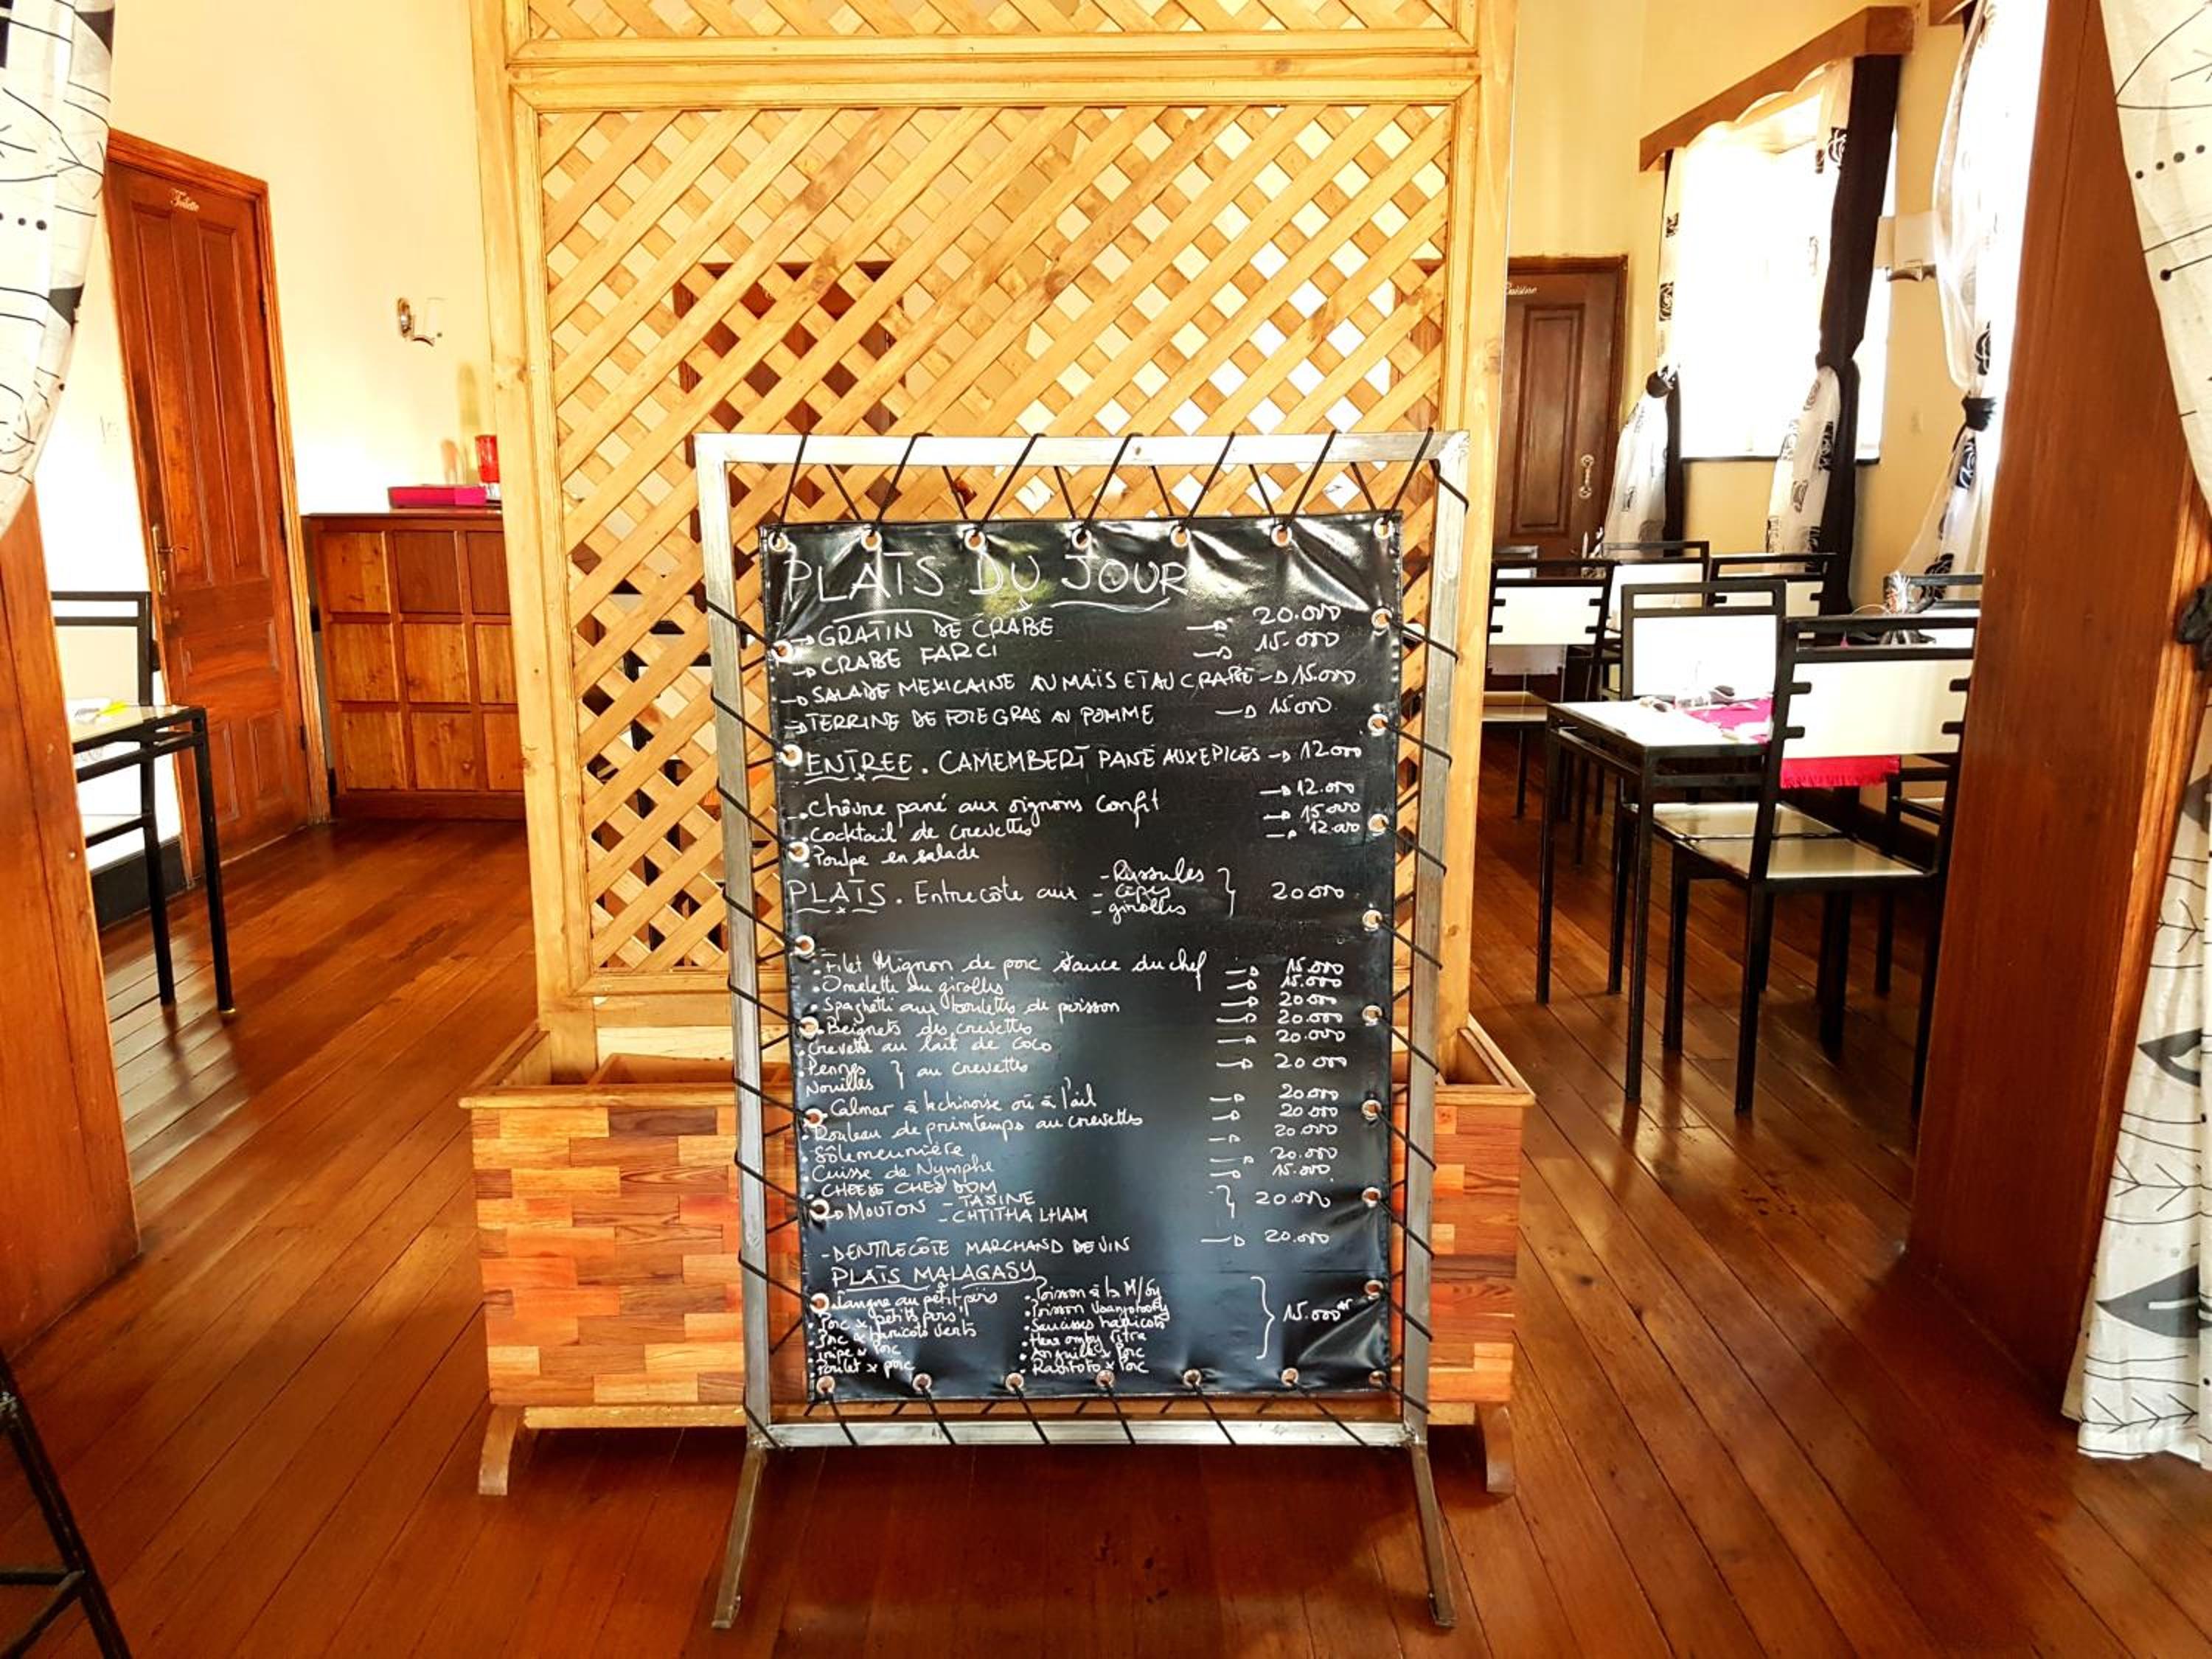 Toilette
Cuisine
PLATS DU JOUR
→ GRATIN DE CRABE → 20.000
→ CRABE FARCI → 15.000
→ SALADE MEXICAINE AU MAÏS ET AU CRABE → 15.000
→ TERRINE DE FOIE GRAS AU POMME → 15000
ENTREE. CAMEMBERT PANE AUX EPICES → 12000
. Chèvre pané aux oignons confit → 12.000
. Cocktail de crevettes → 15000
. Poulpe en salade → 12.000
PLATS. Entrecôte aux - Russules } 20000
- cèpes
- girolles
. Filet Mignon de porc sauce du chef → 15.000
. Omelette au girolles → 15.000
. Spaghetti aux boulettes de poisson → 20000
. Beignets des crevettes → 20.000
. Crevette au lait de coco → 20.000
. Pennes } au crevettes → 20000
Nouilles
. Calmar à la chinoise où à l'ail → 20000
. Rouleau de printemps au crevettes → 20000
. Sôle meunière → 20000
. Cuisse de Nymphe → 20.000
. CHEESE CHEZ DOM → 15.000
→ MOUTON - TAJINE } 20.000
- CHTITHA LHAM
- DENTRECÔTE MARCHAND DE VIN → 20.000
PLATS MALAGASY
. Langue au petit pois . Poisson à la M/gy } 15.000 Ar
. Porc x petits pois . Poisson Voanjobory
. Porc x haricots verts . Saucisses haricots
. Tripe x Porc . Hena omby ritra
. Poulet x porc . Anguille x Porc
. Ravitoto x Porc